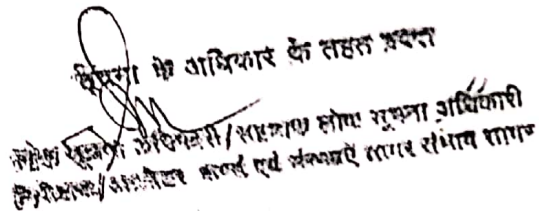 सूचना के अधिकार के तहत प्रदत्त
लोक सूचना अधिकारी / सहायक लोक सूचना अधिकारी
एवं संस्थाऐं सागर संभाग सागर